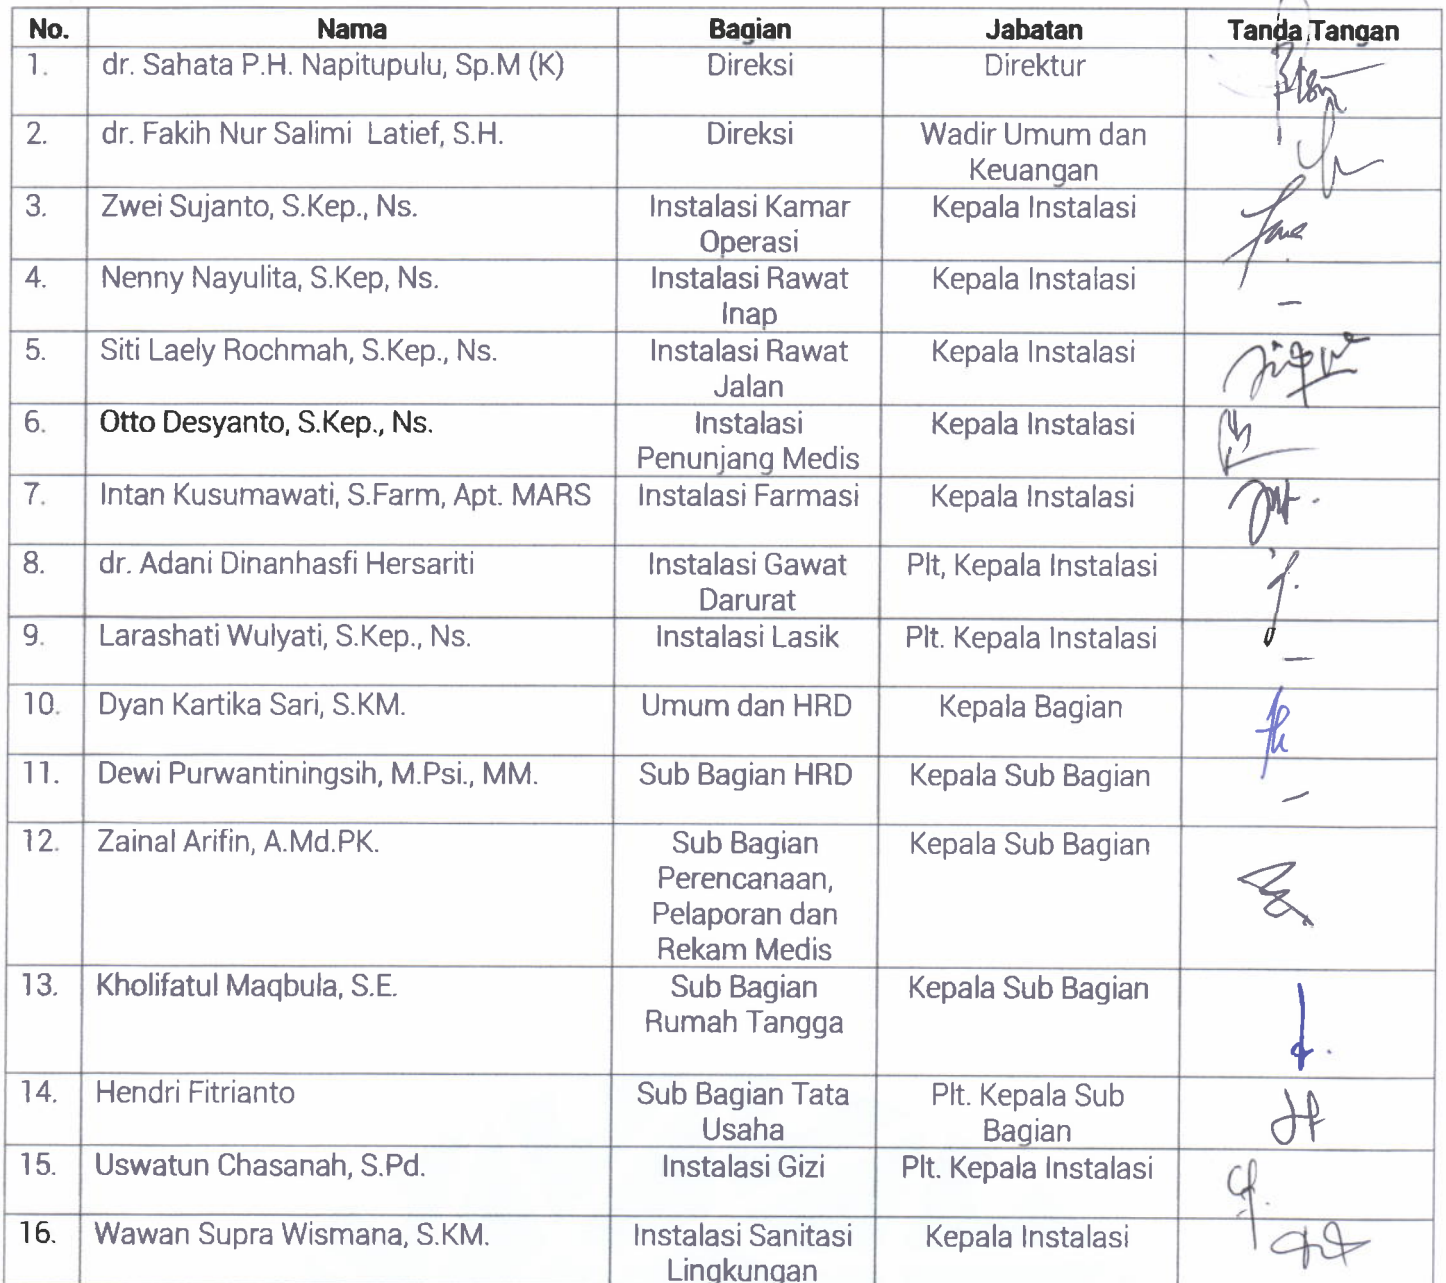 No. Nama Bagian Jabatan Tanda Tangan
1. dr. Sahata P.H. Napitupulu, Sp.M (K) Direksi Direktur
2. dr. Fakih Nur Salimi Latief, S.H. Direksi Wadir Umum dan
Keuangan
3. Zwei Sujanto, S.Kep., Ns. Instalasi Kamar Kepala Instalasi
Operasi
4. Nenny Nayulita, S.Kep, Ns. Instalasi Rawat Kepala Instalasi
Inap –
5. Siti Laely Rochmah, S.Kep., Ns. Instalasi Rawat Kepala Instalasi
Jalan
6. Otto Desyanto, S.Kep., Ns. Instalasi Kepala Instalasi
Penunjang Medis
7. Intan Kusumawati, S.Farm, Apt. MARS Instalasi Farmasi Kepala Instalasi
8. dr. Adani Dinanhasfi Hersariti Instalasi Gawat Plt, Kepala Instalasi
Darurat
9. Larashati Wulyati, S.Kep., Ns. Instalasi Lasik Plt. Kepala Instalasi
–
10. Dyan Kartika Sari, S.KM. Umum dan HRD Kepala Bagian
11. Dewi Purwantiningsih, M.Psi., MM. Sub Bagian HRD Kepala Sub Bagian
–
12. Zainal Arifin, A.Md.PK. Sub Bagian Kepala Sub Bagian
Perencanaan,
Pelaporan dan
Rekam Medis
13. Kholifatul Maqbula, S.E. Sub Bagian Kepala Sub Bagian
Rumah Tangga
14. Hendri Fitrianto Sub Bagian Tata Plt. Kepala Sub
Usaha Bagian
15. Uswatun Chasanah, S.Pd. Instalasi Gizi Plt. Kepala Instalasi
16. Wawan Supra Wismana, S.KM. Instalasi Sanitasi Kepala Instalasi
Lingkungan